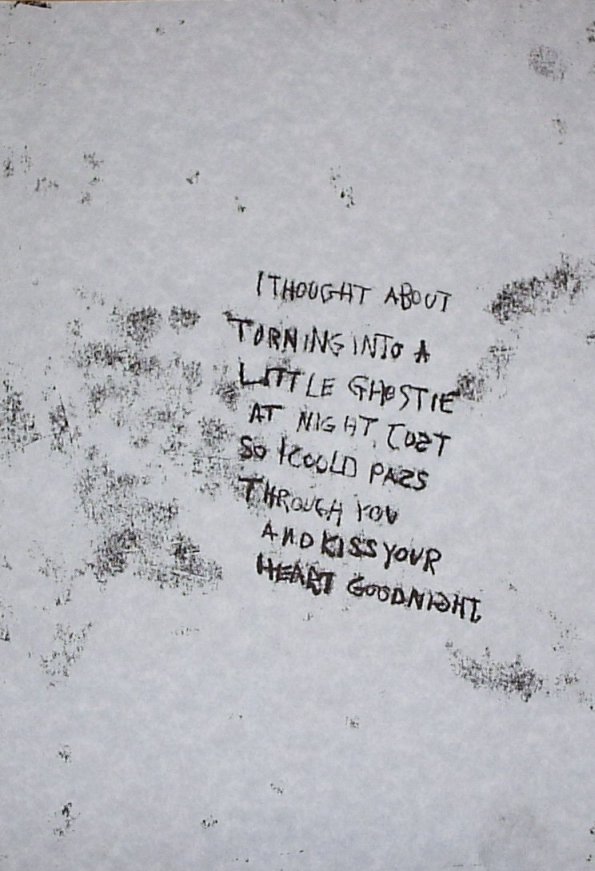 I THOUGHT ABOUT
TURNING INTO A
LITTLE GHOSTIE
AT NIGHT, JUST
SO I COULD PASS
THROUGH YOU
AND KISS YOUR
HEART GOODNIGHT.